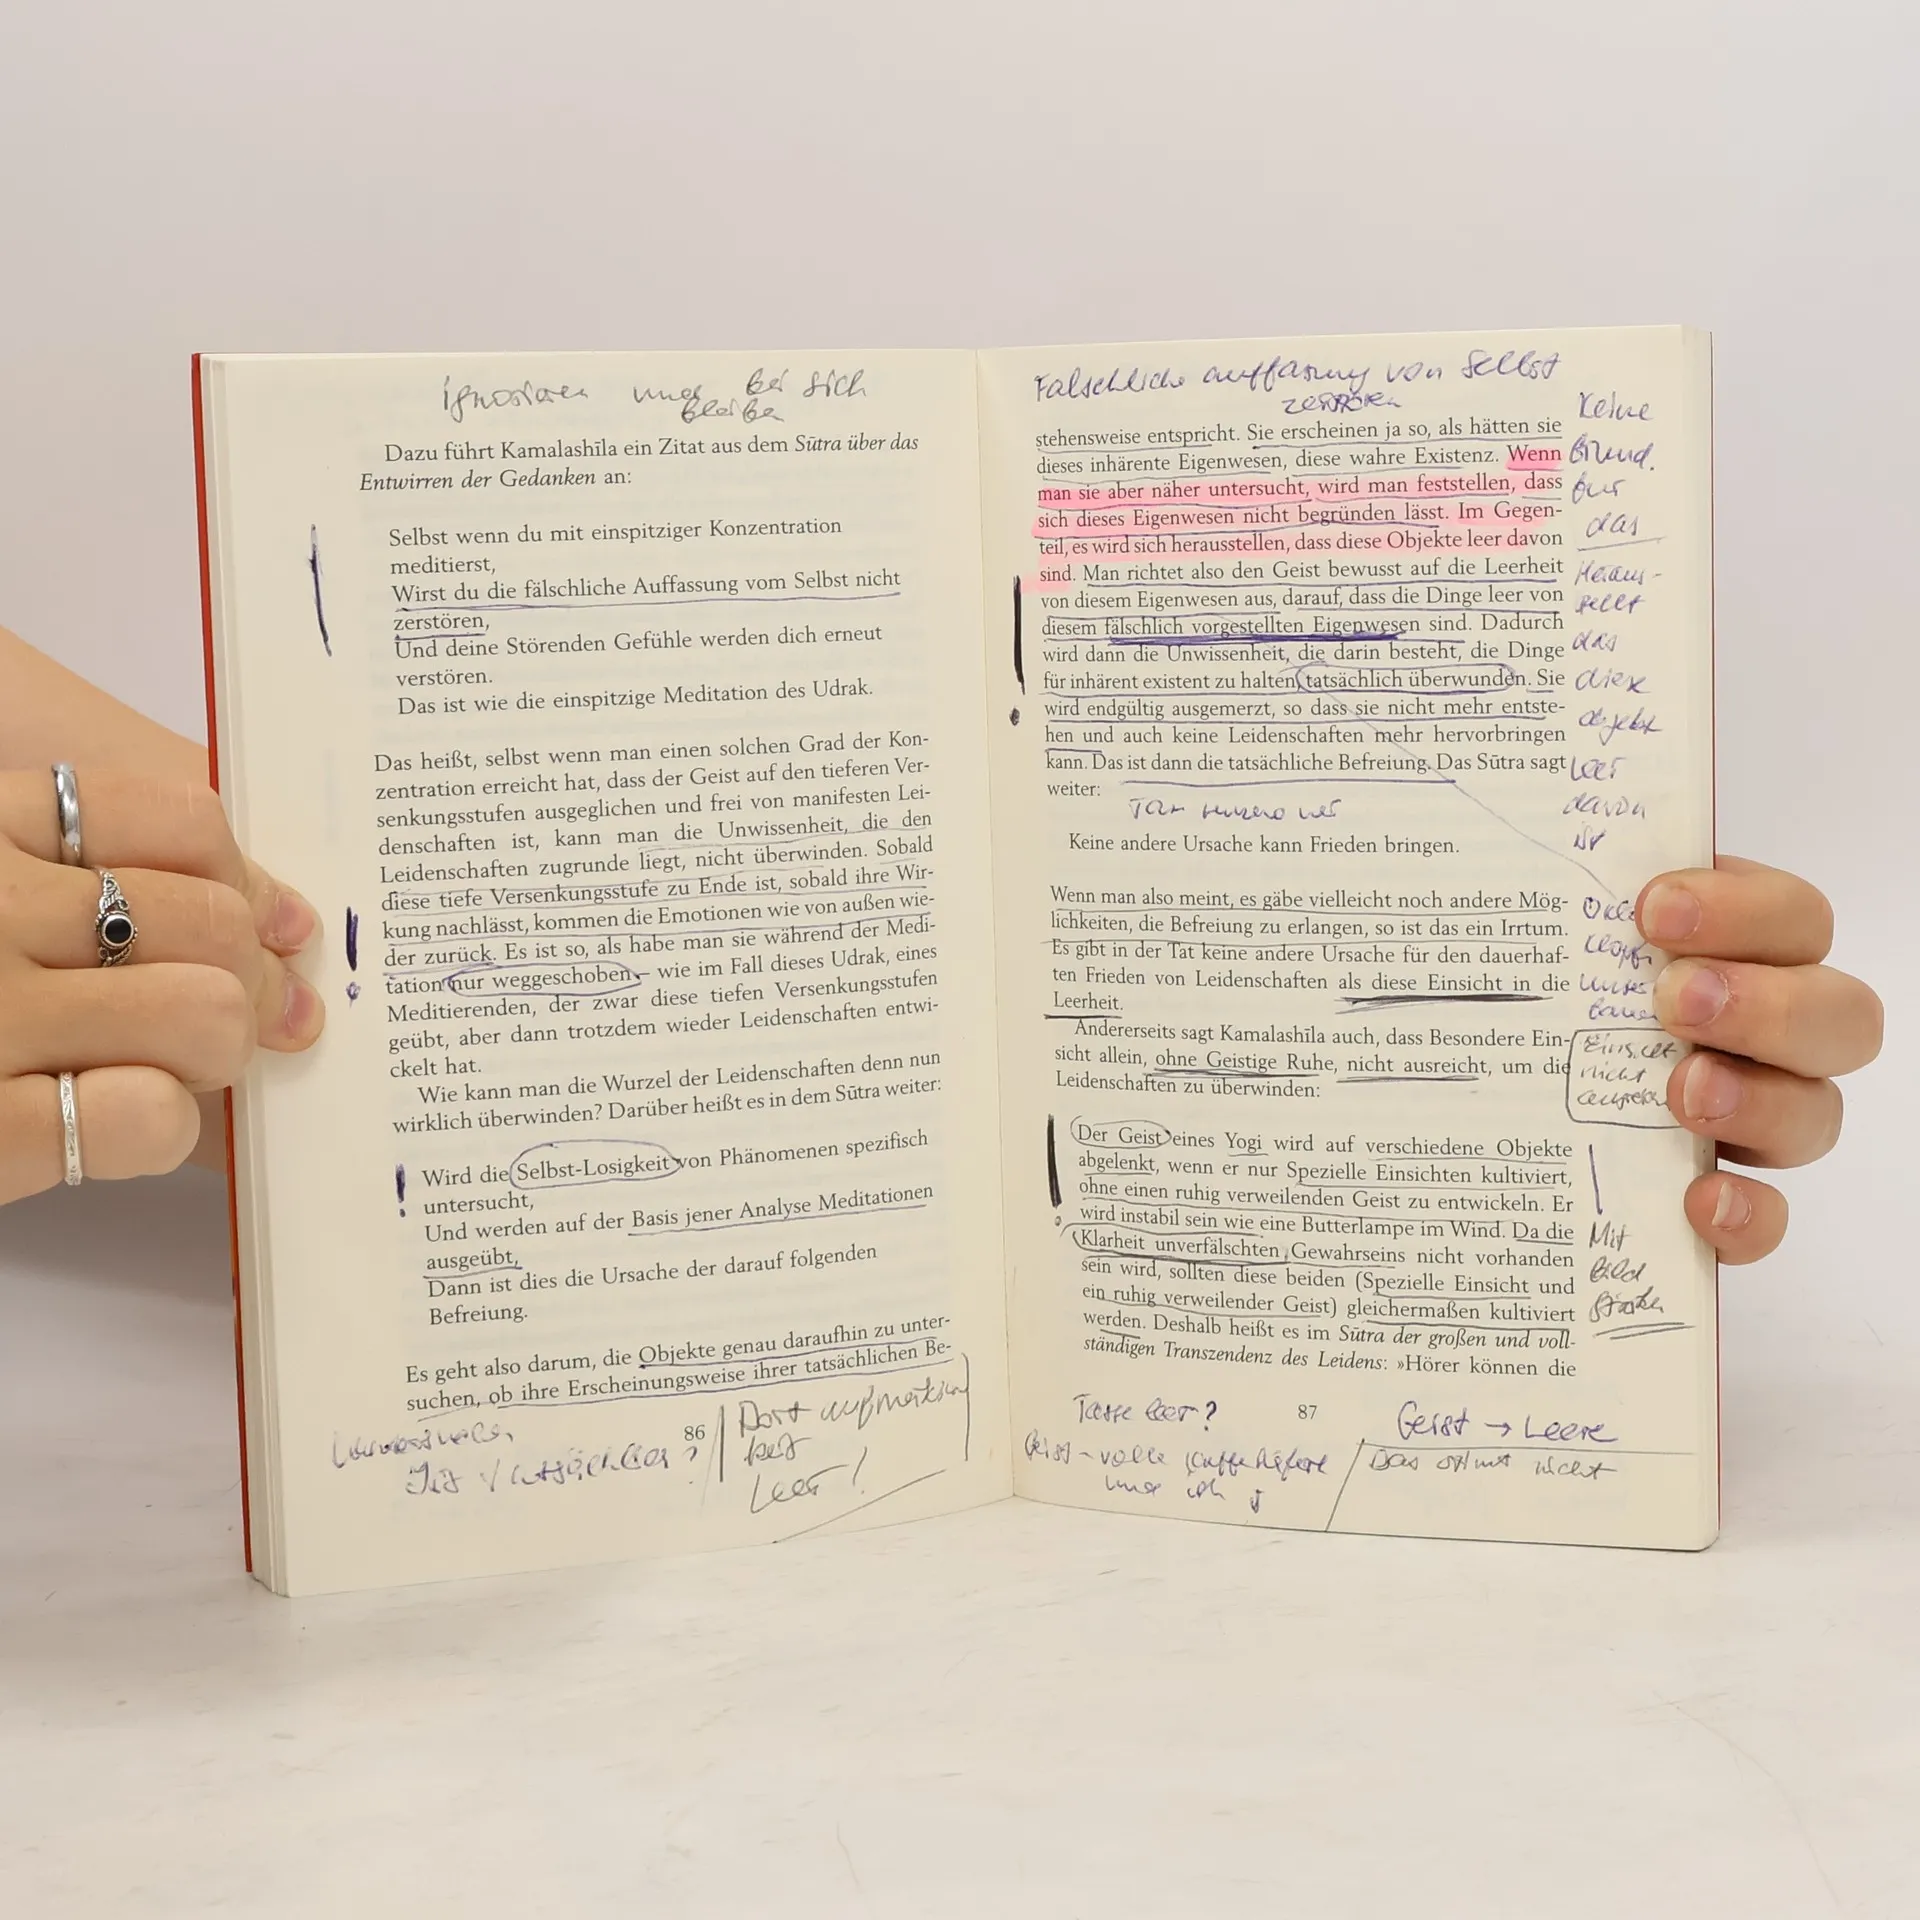 ignorieren und bei sich
bleiben
Dazu führt Kamalashīla ein Zitat aus dem Sūtra über das
Entwirren der Gedanken an:
Selbst wenn du mit einspitziger Konzentration
meditierst,
Wirst du die fälschliche Auffassung vom Selbst nicht
zerstören,
Und deine Störenden Gefühle werden dich erneut
verstören.
Das ist wie die einspitzige Meditation des Udrak.
Das heißt, selbst wenn man einen solchen Grad der Kon-
zentration erreicht hat, dass der Geist auf den tieferen Ver-
senkungsstufen ausgeglichen und frei von manifesten Lei-
denschaften ist, kann man die Unwissenheit, die den
Leidenschaften zugrunde liegt, nicht überwinden. Sobald
diese tiefe Versenkungsstufe zu Ende ist, sobald ihre Wir-
kung nachlässt, kommen die Emotionen wie von außen wie-
der zurück. Es ist so, als habe man sie während der Medi-
tation nur weggeschoben – wie im Fall dieses Udrak, eines
Meditierenden, der zwar diese tiefen Versenkungsstufen
geübt, aber dann trotzdem wieder Leidenschaften entwi-
ckelt hat.
Wie kann man die Wurzel der Leidenschaften denn nun
wirklich überwinden? Darüber heißt es in dem Sūtra weiter:
Wird die Selbst-Losigkeit von Phänomenen spezifisch
untersucht,
Und werden auf der Basis jener Analyse Meditationen
ausgeübt,
Dann ist dies die Ursache der darauf folgenden
Befreiung.
Es geht also darum, die Objekte genau daraufhin zu unter-
suchen, ob ihre Erscheinungsweise ihrer tatsächlichen Be-
86
Leer!
Fälschliche auffasung von Selbst
zerstören
stehensweise entspricht. Sie erscheinen ja so, als hätten sie
dieses inhärente Eigenwesen, diese wahre Existenz. Wenn
man sie aber näher untersucht, wird man feststellen, dass
sich dieses Eigenwesen nicht begründen lässt. Im Gegen-
teil, es wird sich herausstellen, dass diese Objekte leer davon
sind. Man richtet also den Geist bewusst auf die Leerheit
von diesem Eigenwesen aus, darauf, dass die Dinge leer von
diesem fälschlich vorgestellten Eigenwesen sind. Dadurch
wird dann die Unwissenheit, die darin besteht, die Dinge
für inhärent existent zu halten, tatsächlich überwunden. Sie
wird endgültig ausgemerzt, so dass sie nicht mehr entste-
hen und auch keine Leidenschaften mehr hervorbringen
kann. Das ist dann die tatsächliche Befreiung. Das Sūtra sagt
weiter:
Keine andere Ursache kann Frieden bringen.
Wenn man also meint, es gäbe vielleicht noch andere Mög-
lichkeiten, die Befreiung zu erlangen, so ist das ein Irrtum.
Es gibt in der Tat keine andere Ursache für den dauerhaf-
ten Frieden von Leidenschaften als diese Einsicht in die
Leerheit.
Andererseits sagt Kamalashīla auch, dass Besondere Ein-
sicht allein, ohne Geistige Ruhe, nicht ausreicht, um die
Leidenschaften zu überwinden:
Der Geist eines Yogi wird auf verschiedene Objekte
abgelenkt, wenn er nur Spezielle Einsichten kultiviert,
ohne einen ruhig verweilenden Geist zu entwickeln. Er
wird instabil sein wie eine Butterlampe im Wind. Da die
Klarheit unverfälschten Gewahrseins nicht vorhanden
sein wird, sollten diese beiden (Spezielle Einsicht und
ein ruhig verweilender Geist) gleichermaßen kultiviert
werden. Deshalb heißt es im Sūtra der großen und voll-
ständigen Transzendenz des Leidens: »Hörer können die
87
Keine
Grund
für
das
Heraus-
stellt
das
diese
objekt
Leer
davon
ist
Einsicht
nicht
Mit
Bild
Tasse leer?
Geist → Leere
Das stimt nicht